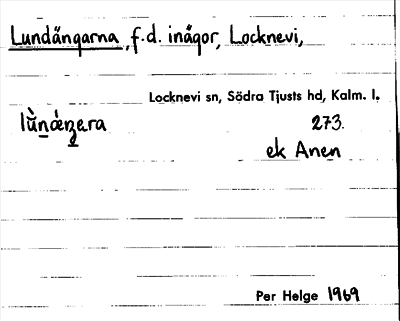 Lundängarna, f.d. inägor, Locknevi,
Locknevi sn, Södra Tjusts hd, Kalm. l.
lùn̲áŋe̲ra 273.
ek Anen
Per Helge 1969